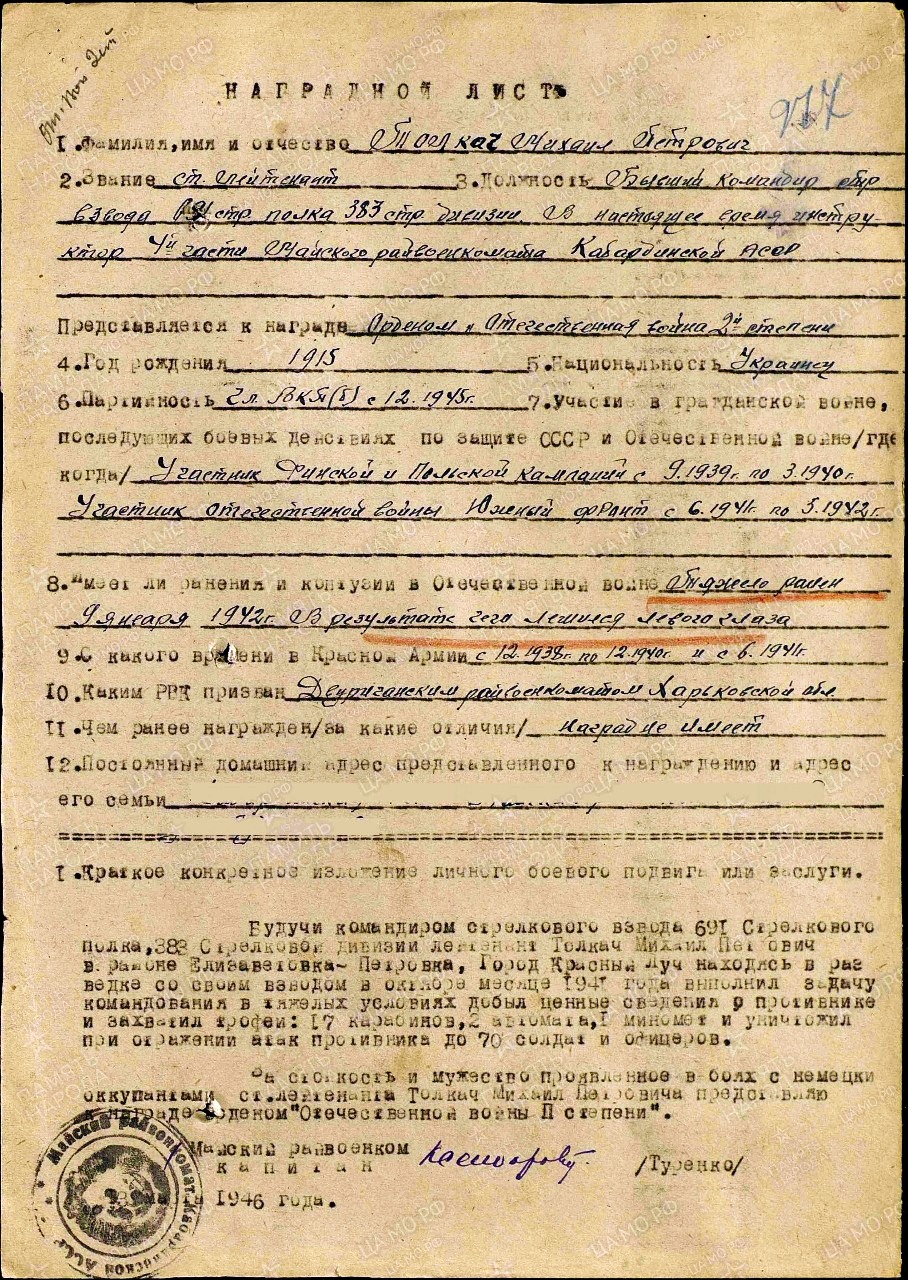 277
НАГРАДНОЙ ЛИСТ
I.Фамилия,имя и отчество Толкач Михаил Петрович
2.Звание ст. лейтенант 3.Должность Бывший командир стр
взвода 691 стр. полка 383 стр. дивизии В настоящее время инстру-
ктор 4й части Майского райвоенкомата Кабардинской АССР
Представляется к награде Орденом „Отечественная война 2й степени
4.Год рождения 1915 5.Национальность Украинец
6.Партийность Чл. ВКП(б) с 12.1945г. 7.Участие в гражданской войне,
последующих боевых действиях по защите СССР и Отечественной войне/где
когда/ Участник Финской и Польской кампаний с 9.1939г. по 3.1940г.
Участник отечественной войны Южный фронт с 6.1941г. по 5.1942г.
8.Имеет ли ранения и контузии в Отечественной войне Тяжело ранен
9 января 1942г. В результате чего лешился левого глаза
9.С какого времени в Красной Армии с 12.1938г. по 12.1940г. и с 6.1941г.
10.Каким РВК призван райвоенкоматом Харьковской обл.
II.Чем ранее награжден/за какие отличия/ Наград не имеет
I2.Постоянный домашний адрес представленного к награждению и адрес
его семьи
I.Краткое конкретное изложение личного боевого подвига или заслуги.
Будучи командиром стрелкового взвода 691 Стрелкового
полка,383 Стрелковой дивизии лейтенант Толкач Михаил Петрович
в районе Елизаветовка-Петровка, Город Красный Луч находясь в раз
ведке со своим взводом в октябре месяце 1941 года выполнил задачу
командования в тяжелых условиях добыл ценные сведения о противнике
и захватил трофеи: I7 карабинов,2 автомата,I миномет и уничтожил
при отражении атак противника до 70 солдат и офицеров.
За стойкость и мужество проявленное в боях с немецки
оккупантами ст.лейтенанта Толкач Михаил Петровича представляю
к награде орденом"Отечественной войны П степени".
Майский райвоенком
капитан /Туренко/
1946 года.
Майский райвоенкомат Кабардинской АССР
ЦАМО.РФ